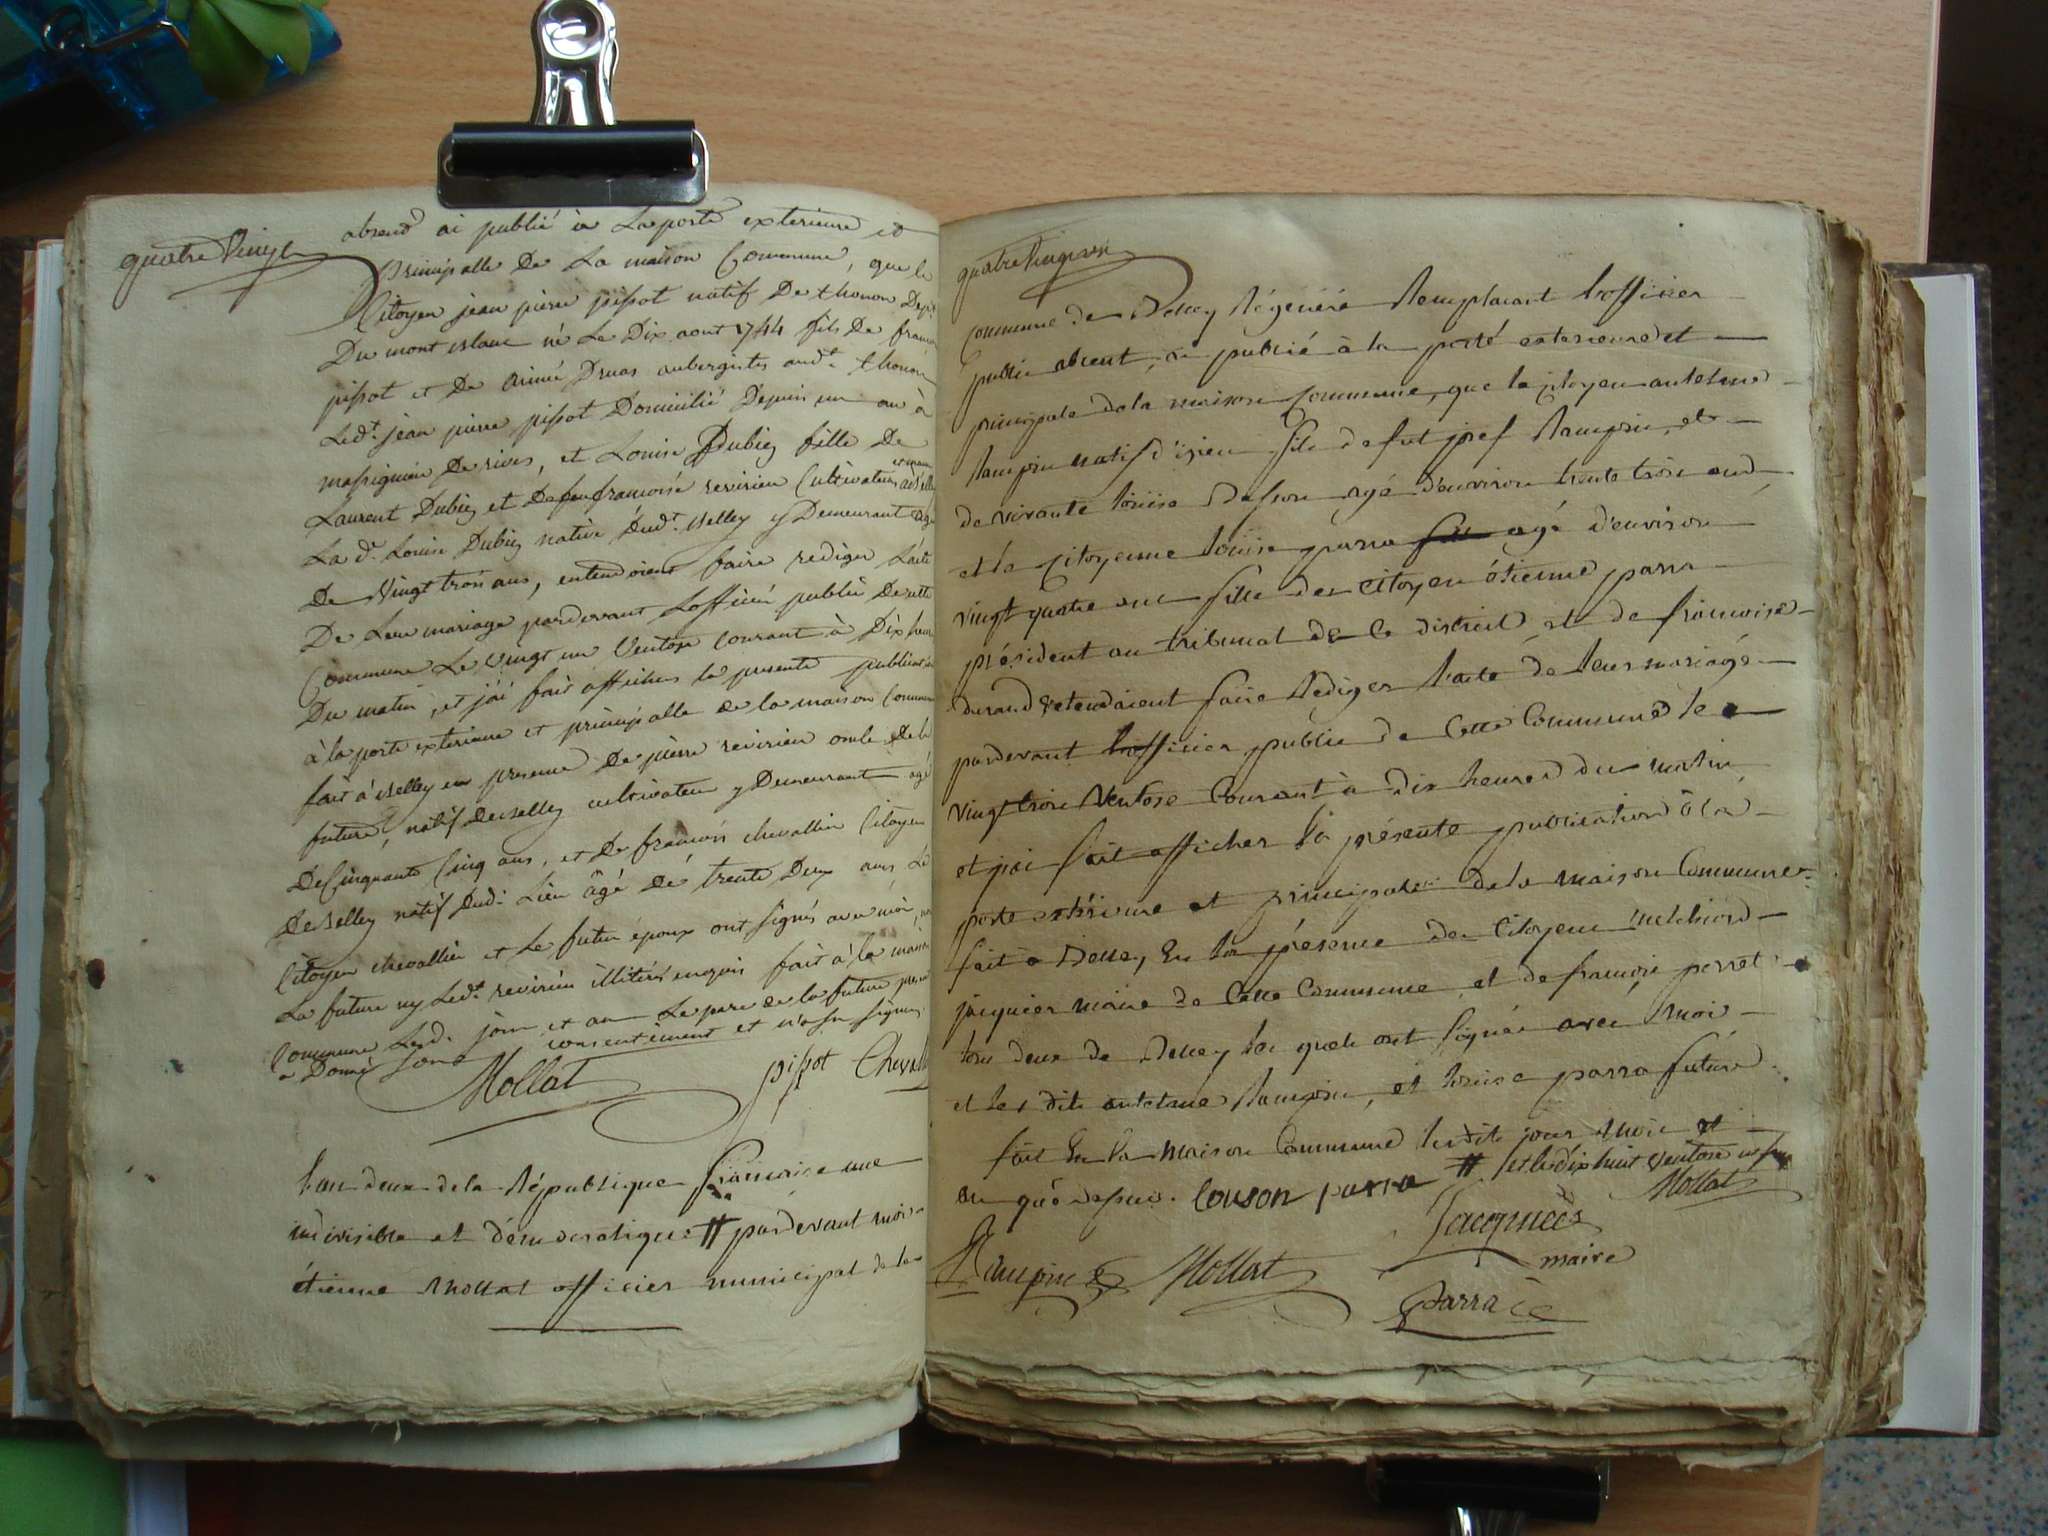 quatre vingt
absend ai publié à La porte exterieure et
principalle De La maison Commune, que le
Citoyen jean pierre pissot natif De thonon Dept
Du mont blanc né Le Dix aout 1744 fils De francois
pissot et De Aimée Druas aubergistes aud.t thonon
Led.t jean pierre pissot Domicilié Depuis un an à
massignieu De rives, et Louise Dubiez fille De
Laurent Dubiez et De feu francoise revirieu Cultivateurs
La d.e Louise Dubiez native dud.t Belley y Demeurant agée
De Vingt trois ans, entendoient faire rediger L'acte
De Leur mariage pardevant Lofficier public De cette
Commune Le vingt un Ventose Courant à Dix heures
Du matin, et j'ai fait afficher la presente publication
à la porte exterieure et principalle de la maison Commune
fait à Belley en presence De pierre revirieu oncle De la
future, natif De Belley cultivateur y Demeurant agé
De Cinquante Cinq ans, et De francois chevallier Citoyen
De Belley natif Dud.t Lieu âgé De trente Deux ans Le
Citoyen chevallier et Le futur époux ont signés avec moi, non
La future ny Led.t revirieu illitérés enquis fait à La maison
Commune Led. jour et an Le pere de la future present
a Donné son consentement et n'a su signer
Mollat pissot Chevall
L'an deux de la République francaise une
indivisible et démocratique # pardevant moi
étienne Mollat officier municipal de la
quatre vingt un
commune de Belley Régénéré Remplacant L'officier
public absent, ai publié à la porte exterieure et
principale de la maison Commune, que le citoyen antelme
Rampin natif d'izieu fils de fut josef Rampin, et
de vivante Louise agé d'environ trente trois ans
et la Citoyenne Louise parra agé d'environ
vingt quatre ans fille du Citoyen étienne parra
président au tribunal de ce district et de francoise
durand entendaient faire Rédiger l'acte de leur mariage
pardevant l'officier public de Cette Commune le
vingt trois Ventose Courant à dix heures du matin
et j'ai fait afficher la présente publication à la
porte extérieure et principale de la maison Commune
fait à Belley En la présence du Citoyen melchior
jacquier maire de Cette Commune et de francois perret
tous deux de Belley les quels ont signés avec moi
et les dits antelme Rampin, et Louise parra future
fait En la maison Commune lesdits jour mois et
an que dessus. Louson parra # et le dix huit ventose
Rampin Mollat Jacquier Mollat
maire
parra